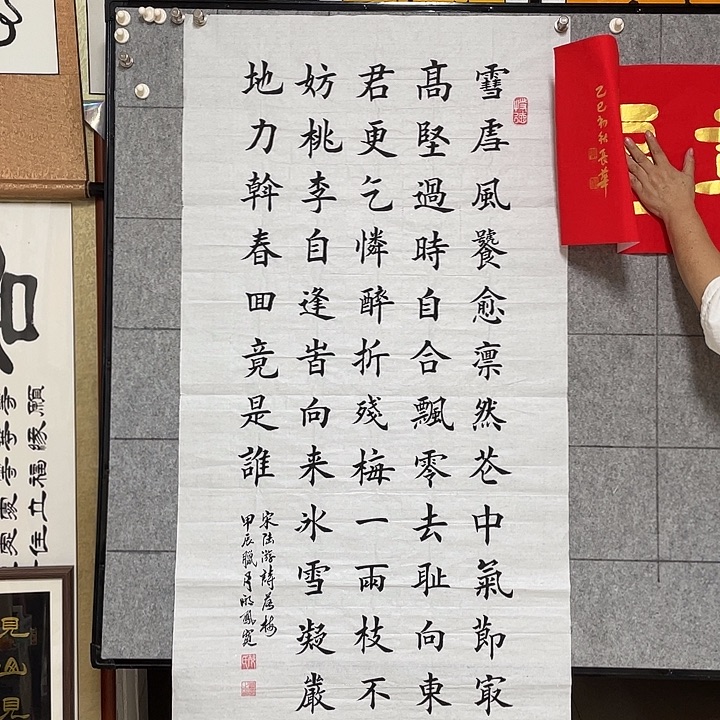 雪虐風饕愈凛然花中氣節最
高堅過時自合飄零去耻向東
君更乞憐醉折殘梅一兩枝不
妨桃李自逢旹向来氷雪凝嚴
地力斡春囬竟是誰
宋陸游詩落梅
甲辰臘月
乙巳初秋長華
見山見